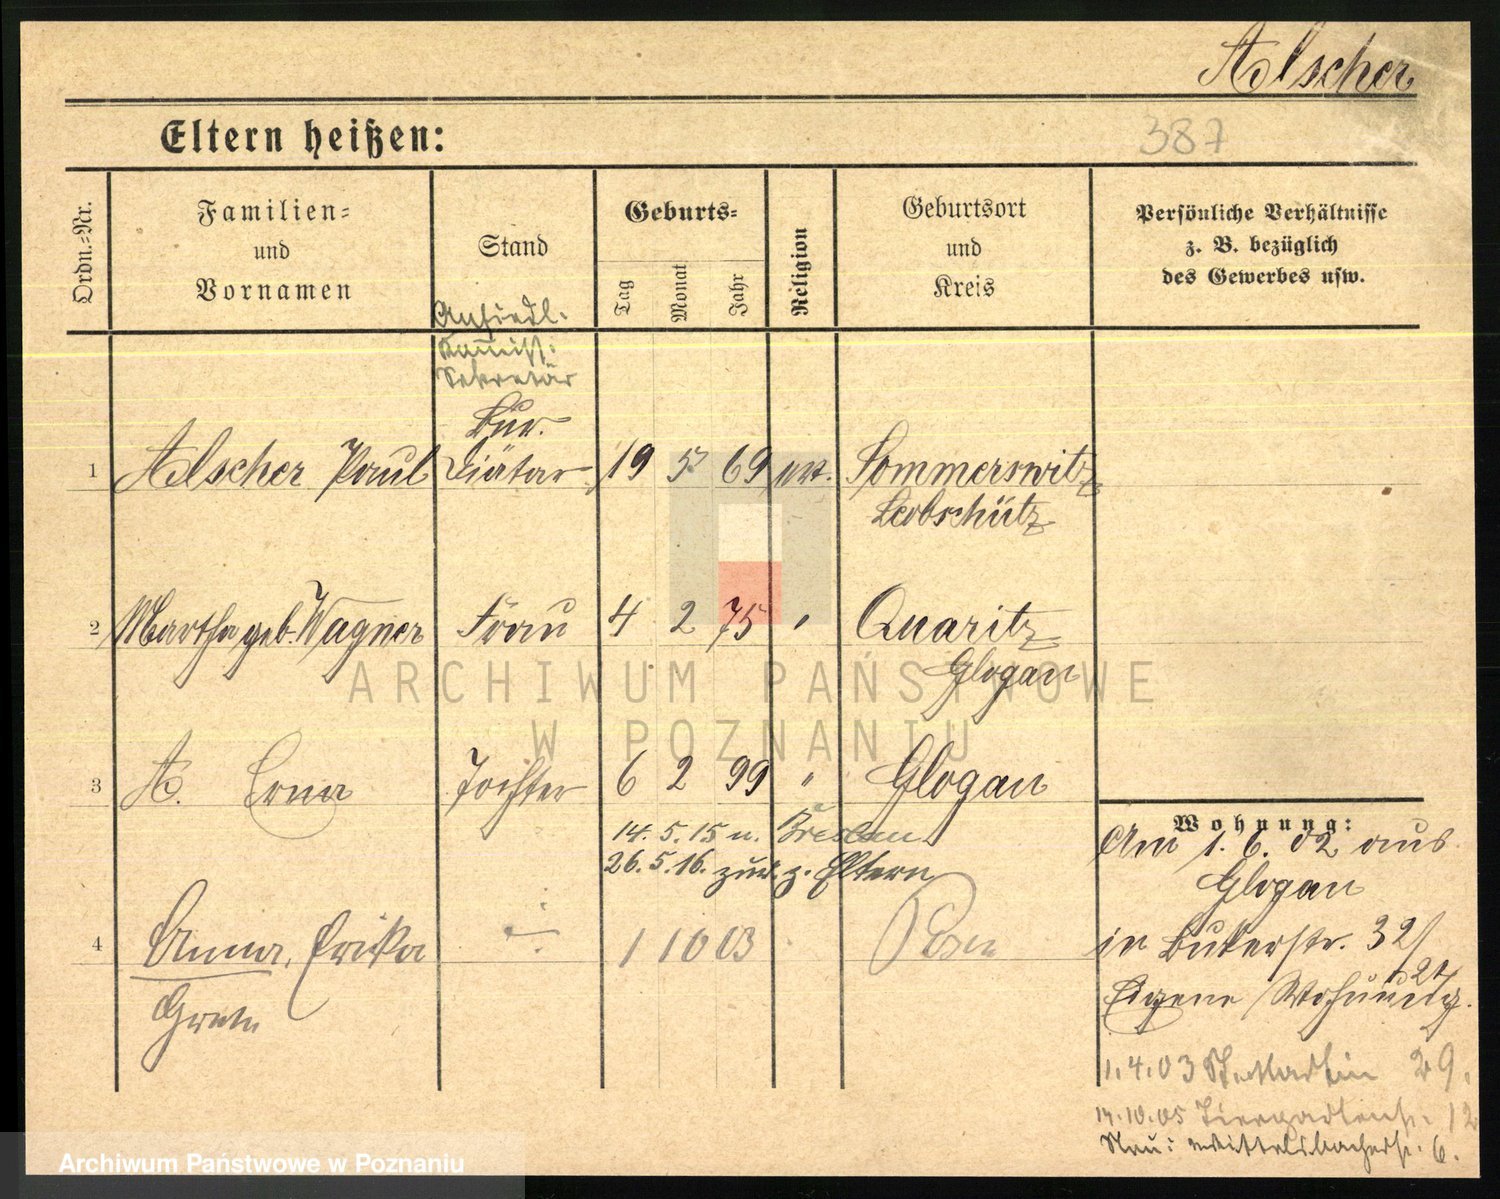 Alscher
Eltern heißen:
387
Ordn.-Nr.
Familien-
und
Vornamen
Stand
Geburts-
Tag
Monat
Jahr
Religion
Geburtsort
und
Kreis
Persönliche Verhältnisse
z. B. bezüglich
des Gewerbes usw.
Ansiedl.
Sekretär
Bur.
1 Alscher Paul Diätar 19 5 69 Sommerswitz
Leobschütz
2 Martha geb. Wagner Frau 4 2 75 " Quaritz
Glogau
3 A. Erna Tochter 6 2 99 " Glogau
14. 5. 15 n. Breslau
26. 5. 16. zur. z. Eltern
4 Anna, Erika ÷ 1 10 03 Posen
Grete
Wohnung:
Am 1. 6. 02 aus
Glogau
in Bukerstr. 32/
Eigene Wohnung.
1.4.03 St. Martin 29.
10.05 Tiergartenstr. 12
Neu: Wittelsbacherstr. 6.
ARCHIWUM PAŃSTWOWE
W POZNANIU
Archiwum Państwowe w Poznaniu